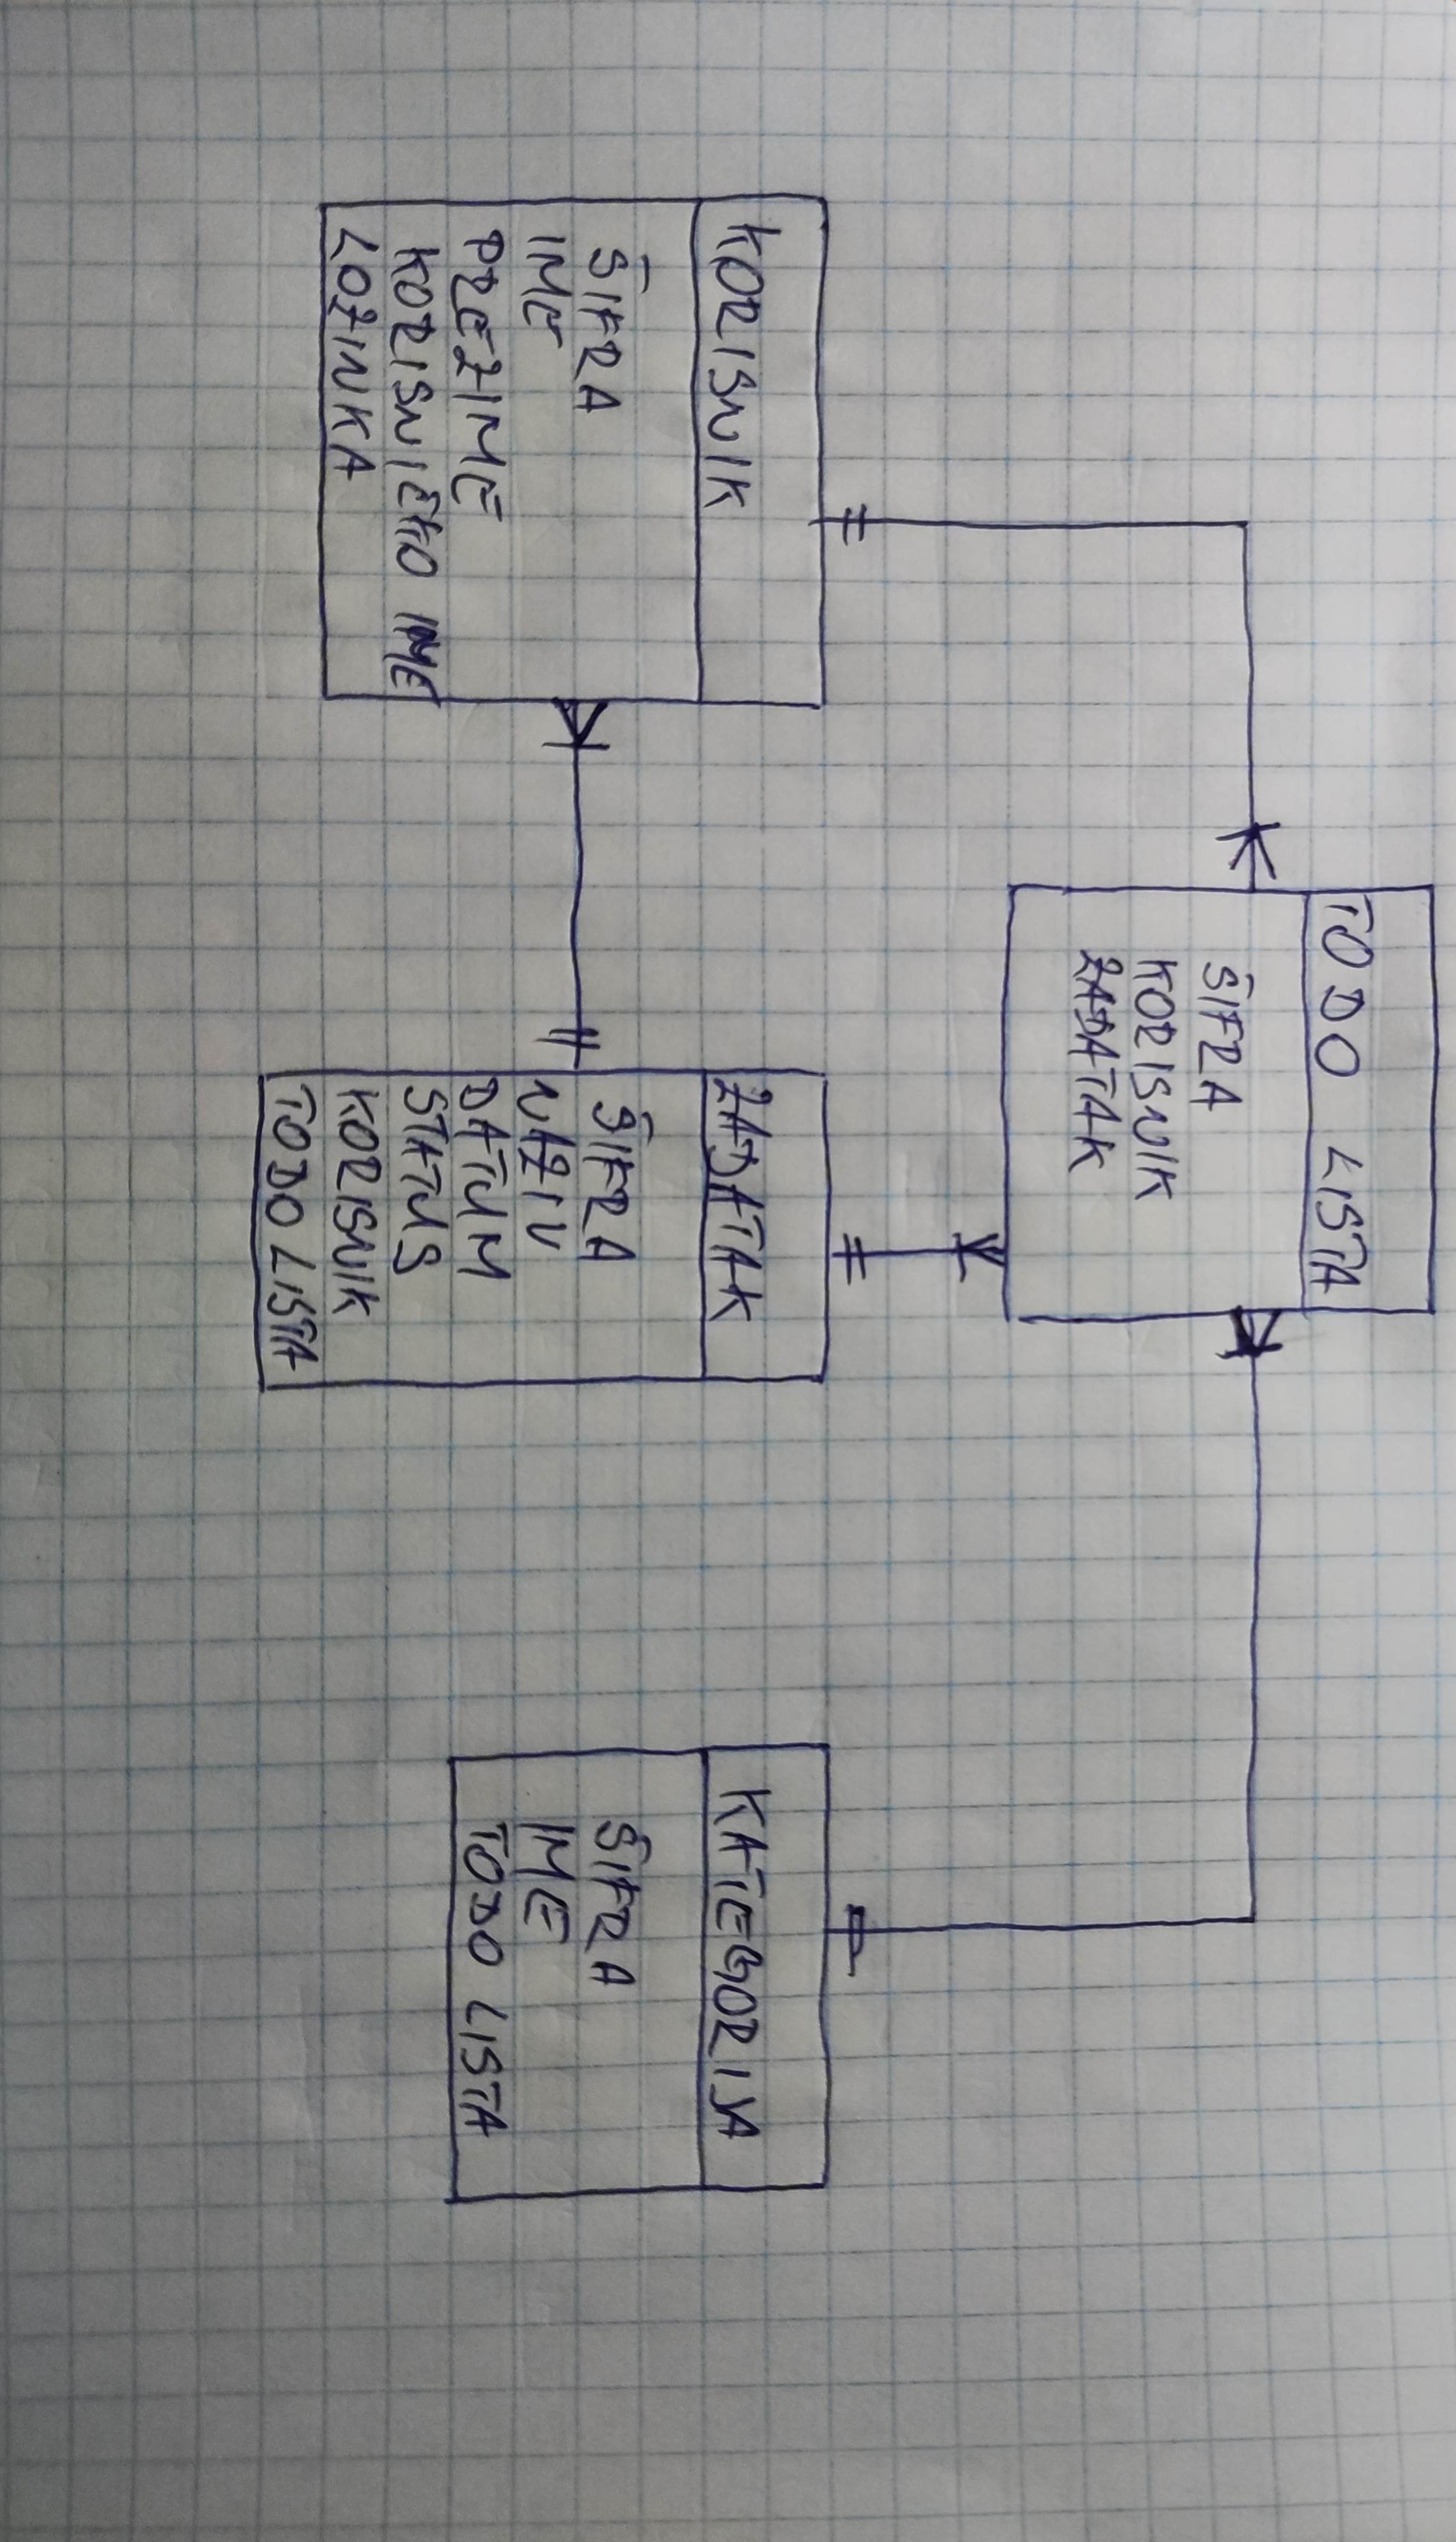 TODO LISTA
ŠIFRA
KORISNIK
ZADATAK
KORISNIK
ŠIFRA
IME
PREZIME
KORISNIČKO IME
LOZINKA
ZADATAK
ŠIFRA
NAZIV
DATUM
STATUS
KORISNIK
TODO LISTA
KATEGORIJA
ŠIFRA
IME
TODO LISTA